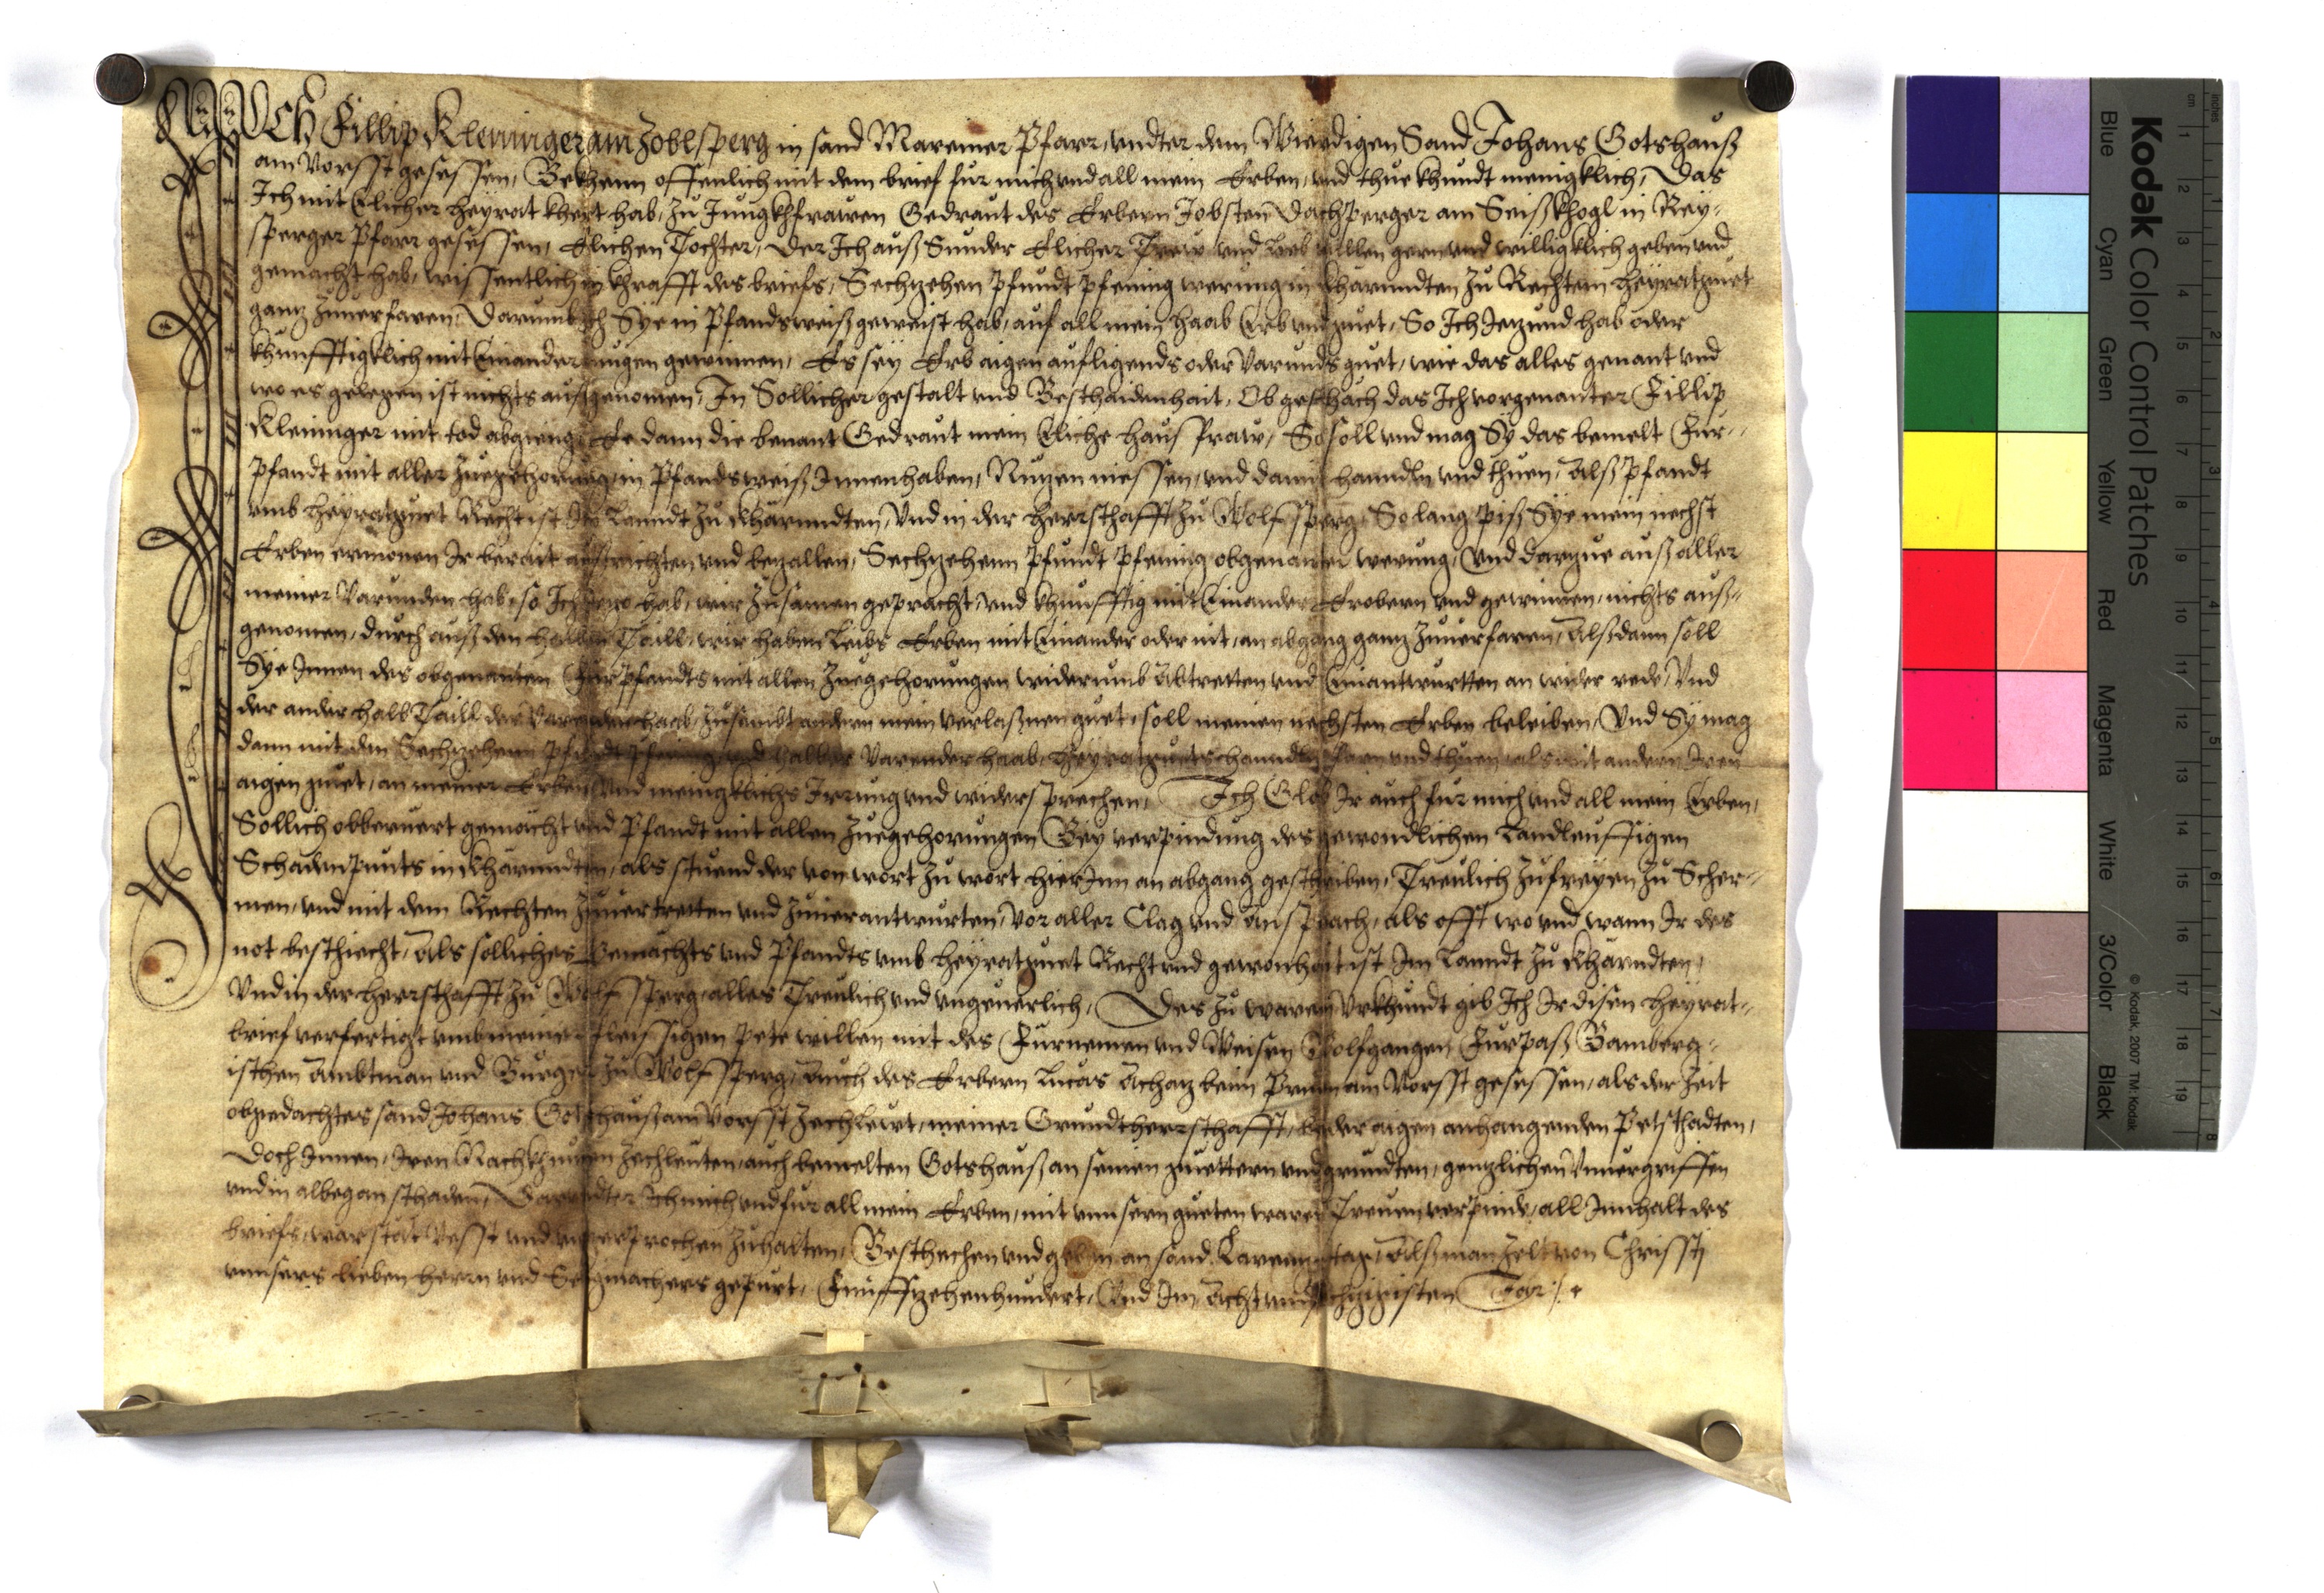 ICH Fillip Kleninger am Zoblsperg in sand Mareiner Pfarr, undter dem Wierdigen Sand Johans Gotshauß
am Vorsst gesessen, Bekhenn offenlich mit dem brief fur mich und all mein Erben, und thue khundt menigklich, Das
Ich mit Elicher heyrat khert hab, zu Jungkhfrawen Gedraut des Erbern Jobsten Dachsperger am Seißkhogl in Rey-
sperger Pfarr gesessen, Elichen Tochter, Der Ich auß Sunder Elicher Trew und lieb willen gern und willigklich geben und
gemacht hab, wissentlich in khrafft des briefs, Sechzehen Pfundt Pfening werung in Khärnndten zu Rechtem heyratguet
ganz zuuerfaren, Darumb Ich Sye in Pfandsweiß geweist hab, auf all mein Haab Erb und guet, So Ich Jezund hab oder
khunfftigklich mit Einander mugen gewinnen, Es sey Erb aigen aufligends oder Varunds guet, wie das alles genant und
wo es gelegen ist nichts außgenomen, In Sollicher gestalt und Beschaidenhait, Ob geschach das Ich vorgenanter Fillip
Kleninger mit tod abgieng Ee dann die benant Gedraut mein Eliche hausfraw, So soll und mag Sy das bemelt Für-
pfandt mit aller Zuegehorung, in Pfandsweiß Innenhaben, Nuzen niessen, und damit hanndln und thuen, Alß Pfandt
umb heyratguet Recht ist Im Lanndt zu Khärnndten, Und in der herrschafft zu Wolfsperg, So lang piß Sye mein nechst
Erben ermonen Ir berait außrichten und bezallen, Sechzehenn Pfundt Pfening obgenanter werung, Und darzue auß aller
meiner Varunden hab, so Ich Jezo hab, wir zusamen gepracht, und khunfftig mit Einander Erobern und gewinnen, nichts auß-
genomen, durchauß den halben Taill, wir haben Leibs Erben mit Einander oder nit, an abgang ganz zuuerfaren, Alßdann soll
Sye Innen des obgenanten Fürpfandts mit allen Zuegehorungen widerumb Abtretten und Einantwurtten an wider rede, Und
der ander halb Taill der Varunden haab, zusambt andern mein verlaßnen guet, soll meinen nechsten Erben beleiben, Und Sy mag
dann mit den Sechzehenn Pfundt Pfening und halber Varender haab, heyratguets hanndln faren und thuen, als mit andern Iren
aigen guet, an meiner Erben Und menigklichs Irrung und widersprechen, Ich Glob Ir auch fur mich und all mein Erben,
Sollich obberuert gemacht und Pfandt mit allen Zuegehorungen Bey verpindung des gewondlichen Landleuffigen
Schadenpunts in Khärnndten, als stuend der von wort zu wort hierInn an abgang geschriben, Treulich zufreyen zu Scher-
men, und mit dem Rechten zuuertretten und zuuerantwurten, vor aller Clag und Ansprach, als offt wo und wann Ir des
not beschiecht, Als solliches Gemächts und Pfandts umb heyratguet Recht und gewonhait ist Im Lanndt zu Khärndten,
Und in der herrschafft zu Wolfsperg, alles Treulich und ungeuerlich, Des zu warem Urkhundt gib Ich Ir disen heyrat-
brief verfertigt umb meiner fleissigen Pete willen mit des Furnemen und Weisen Wolfgangen Furpaß Bamberg-
ischen Ambtman und Burger zu Wolfsperg, Auch des Erbern Lucas Achaz beim Prunn am Vorsst gesessen, als der Zeit
obgedachtes sand Johans Gotshauß am Vorsst Zechleut, meiner Grundtherrschafft, beder aigen anhangenden Petschadten,
Doch Innen, Iren Nachkhumen Zechleuten, auch bemelten Gotshauß an seinen guettern und grundten, genzlichen Unuergriffen
und in albegan schaden, Darundter Ich mich und fur all mein Erben, mit unnsern gueten waren Treuen verpinde, all Innhalt des
briefs, war stät Vesst und unzerprochen zuhalten, Beschechen und geben an sand Larennzen tag, Alß man zelt von Christj
unnsers lieben herrn und Seligmachers gepurt, Funffzehenhundert, Und Im Acht und Achzigisten Jar ./.
Kodak Color Control Patches
Blue Cyan Green Yellow Red Magenta White 3/Color Black
© Kodak, 2007 TM: Kodak
inches 1 2 3 4 5 6 7 8
cm 1 2 3 4 5 6 7 8 9 10 11 12 13 14 15 16 17 18 19